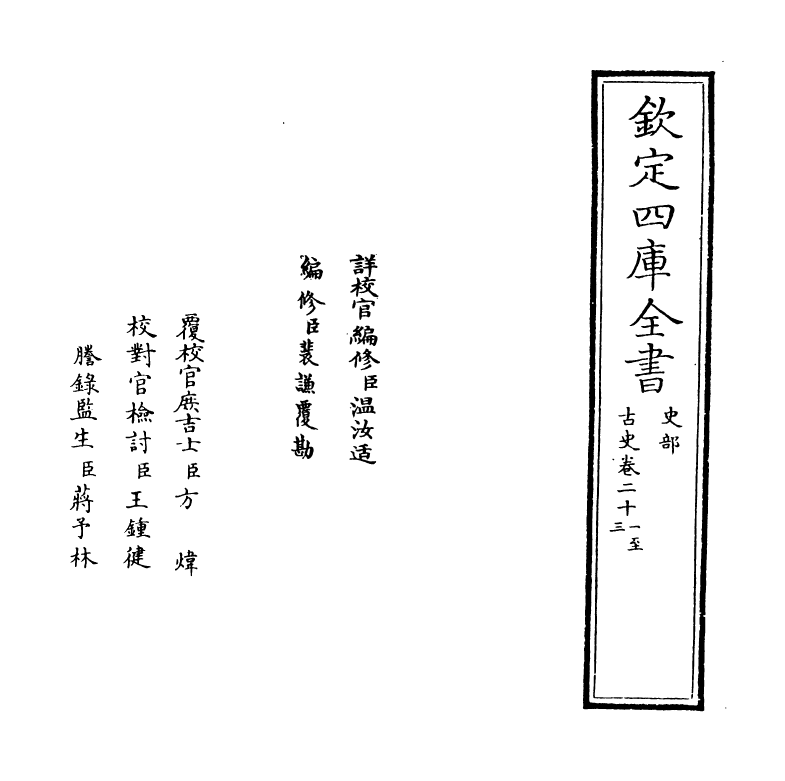 欽定四庫全書
史部
古史卷二十一至三
詳校官編修臣温汝适
編修臣裴謙覆勘
覆校官庶吉士臣方煒
校對官檢討臣王鍾健
謄錄監生臣蔣予林